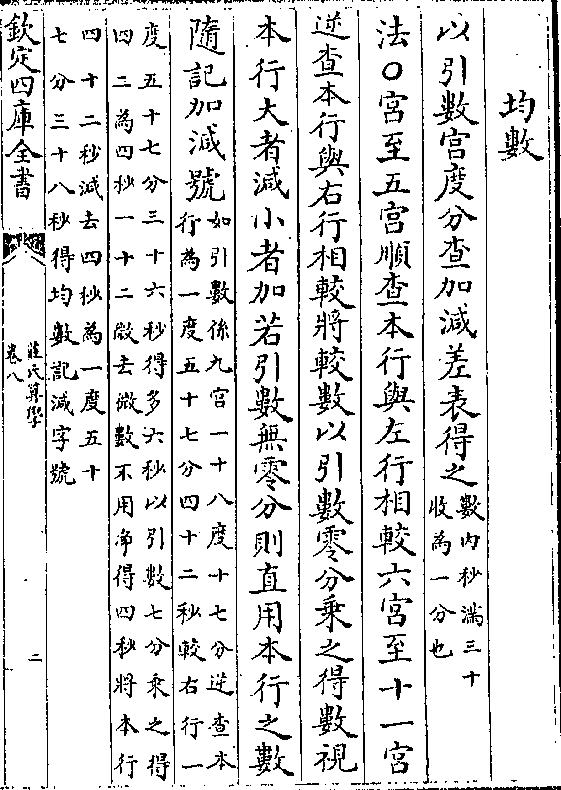 均數
以引數宫度分查加減差表得之數内秒滿三十收為一分也
法〇宫至五宫順查本行與左行相較六宫至十一宫
逆查本行與右行相較將較數以引數零分乗之得數視
本行大者減小者加若引數無零分則直用本行之數
隨記加減號如引數係九宫一十八度十七分逆查本行為一度五十七分四十二秒較右行一
度五十七分三十六秒得多六秒以引數七分乗之得四二為四秒一十二微去微數不用净得四秒將本行
四十二秒減去四秒為一度五十七分三十八秒得均數記減字號
欽定四庫全書
莊氏算學
卷八
二